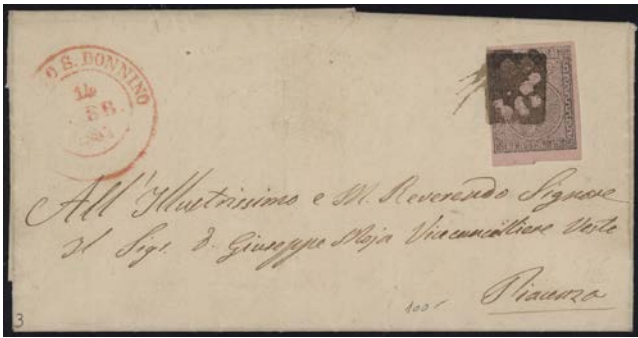 O S. DONNINO
14
All'Illustrissimo e M. Reverendo Signore
Il Sigr. D. Giuseppe Moja Vicecancelliere Vesle
Piacenza
100
3